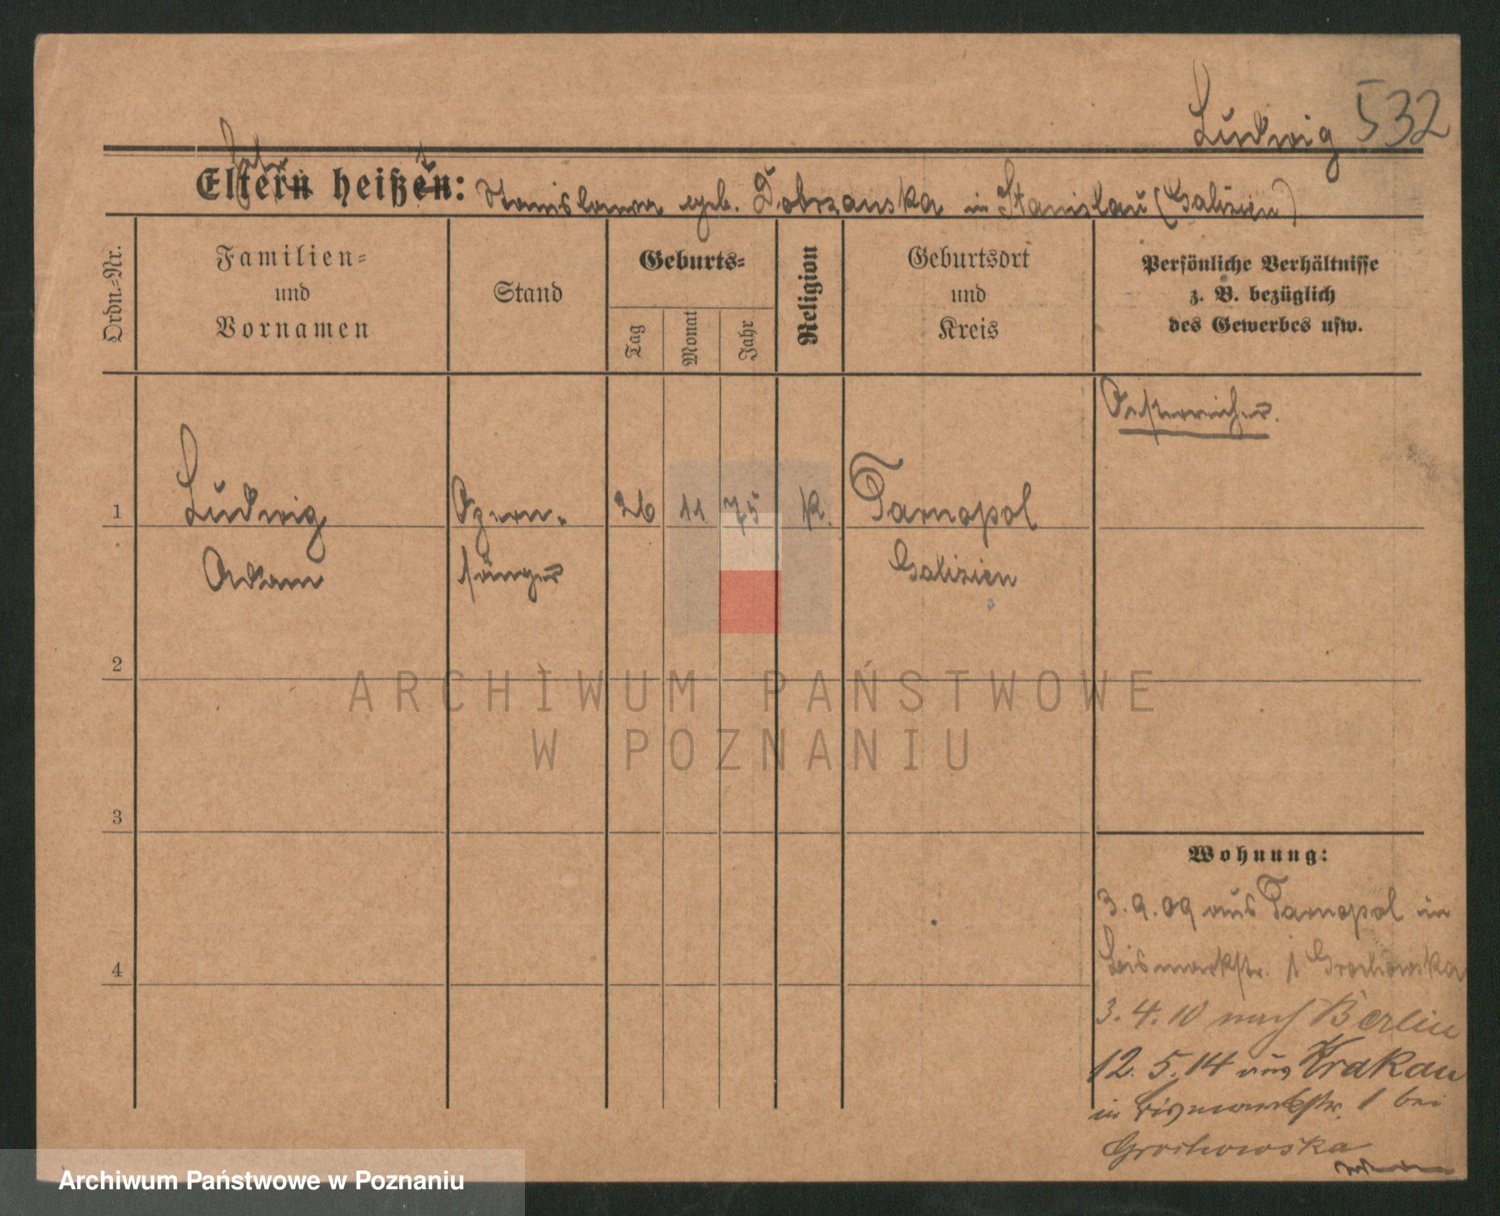 Ludwig 532
Eltern heißen: Stanislawa geb. Dobrzanska in Stanislau (Galizien)
Ordn.-Nr.
Familien-
und
Vornamen
Stand
Geburts-
Tag
Monat
Jahr
Religion
Geburtsort
und
Kreis
Persönliche Verhältnisse
z. B. bezüglich
des Gewerbes usw.
Oesterreicher.
1 Ludwig Opern- 26 11 75 k. Tarnopol
Adam sänger Galizien
2
ARCHIWUM PAŃSTWOWE
W POZNANIU
3
Wohnung:
3.9.09 aus Tarnopol in
Bismarckstr. 1 Grochowska
4
3.4.10 nach Berlin
12.5.14 aus Krakau
in Bismarckstr. 1 bei
Grochowska
Archiwum Państwowe w Poznaniu